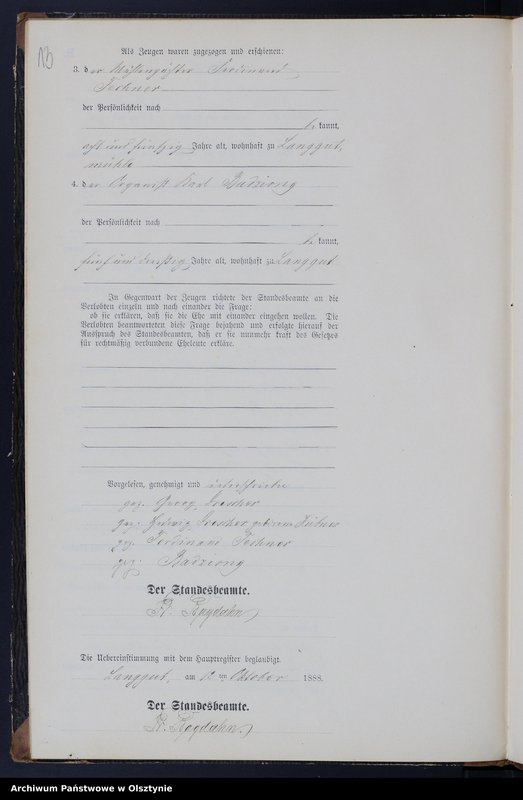 13
Als Zeugen waren zugezogen und erschienen:
3. der Mühlenpächter Ferdinand
Fechner
der Persönlichkeit nach
be kannt,
acht und fünfzig Jahre alt, wohnhaft zu Langgut,
mühle
4. der Organist Karl Badziong
der Persönlichkeit nach
be kannt,
fünf und dreißig Jahre alt, wohnhaft zu Langgut
In Gegenwart der Zeugen richtete der Standesbeamte an die
Verlobten einzeln und nach einander die Frage:
ob sie erklären, daß sie die Ehe mit einander eingehen wollen. Die
Verlobten beantworteten diese Frage bejahend und erfolgte hierauf der
Ausspruch des Standesbeamten, daß er sie nunmehr kraft des Gesetzes
für rechtmäßig verbundene Eheleute erkläre.
Vorgelesen, genehmigt und unterschrieben
gez. Georg Loescher
gez. Hedwig Loescher geborene
gez. Ferdinand Fechner
gez. Badziong
Der Standesbeamte.
Rogdahn
Die Uebereinstimmung mit dem Hauptregister beglaubigt.
Langgut, am 12 ten Oktober 1888.
Der Standesbeamte.
Rogdahn.
Archiwum Państwowe w Olsztynie